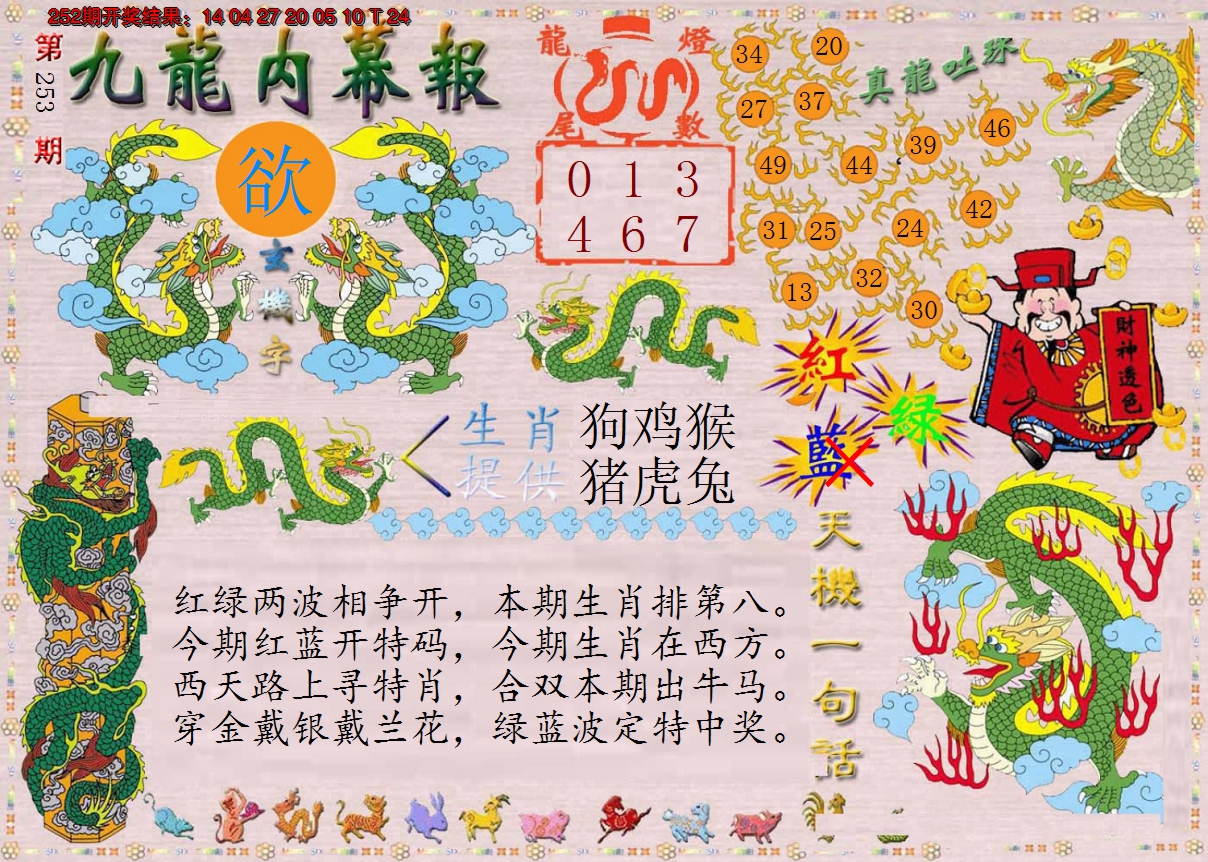 252期开奖结果：14 04 27 20 05 10 T 24
第253期
九龍内幕報
欲
玄機字
龍燈
尾數
0 1 3
4 6 7
真龍吐珠
34 20
27 37
49 44 39 46
31 25 24 42
13 32 30
財神透色
紅
绿
藍
生肖 狗鸡猴
提供 猪虎兔
天機一句话
红绿两波相争开，本期生肖排第八。
今期红蓝开特码，今期生肖在西方。
西天路上寻特肖，合双本期出牛马。
穿金戴银戴兰花，绿蓝波定特中奖。